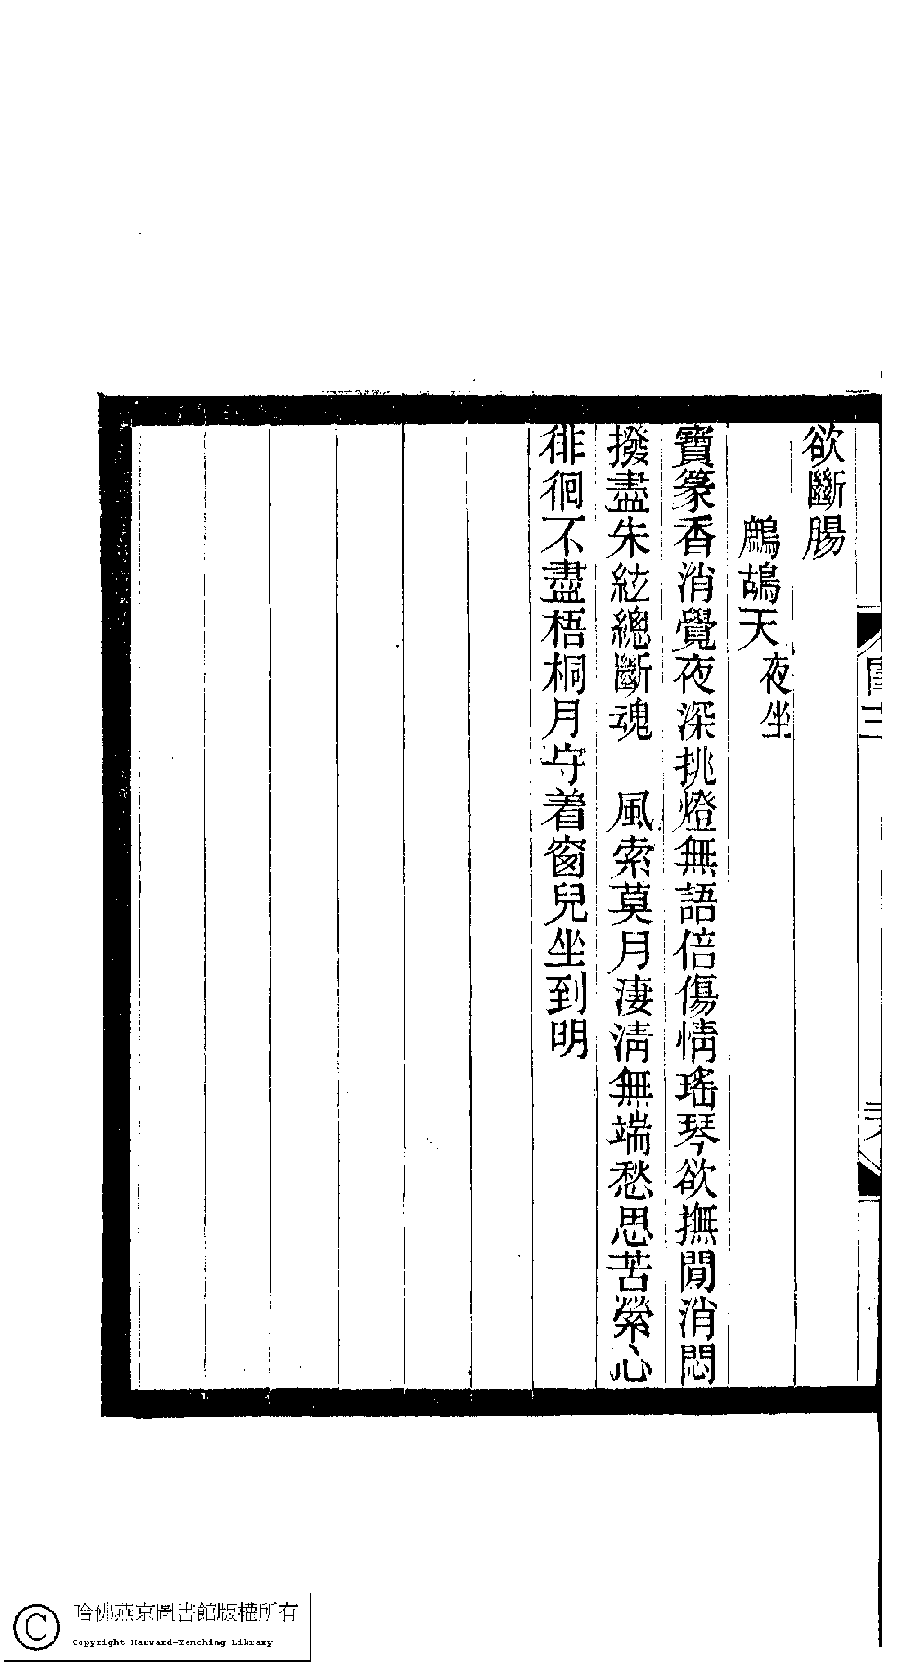 欲斷腸
鷓鴣天 夜坐
寶篆香消覺夜深挑燈無語倍傷情瑤琴欲撫閒消悶
撥盡朱絃總斷魂　風索莫月淒淸無端愁思苦縈心
徘徊不盡梧桐月守着窗兒坐到明
哈佛燕京圖書館版權所有
Copyright Harvard-Yenching Library